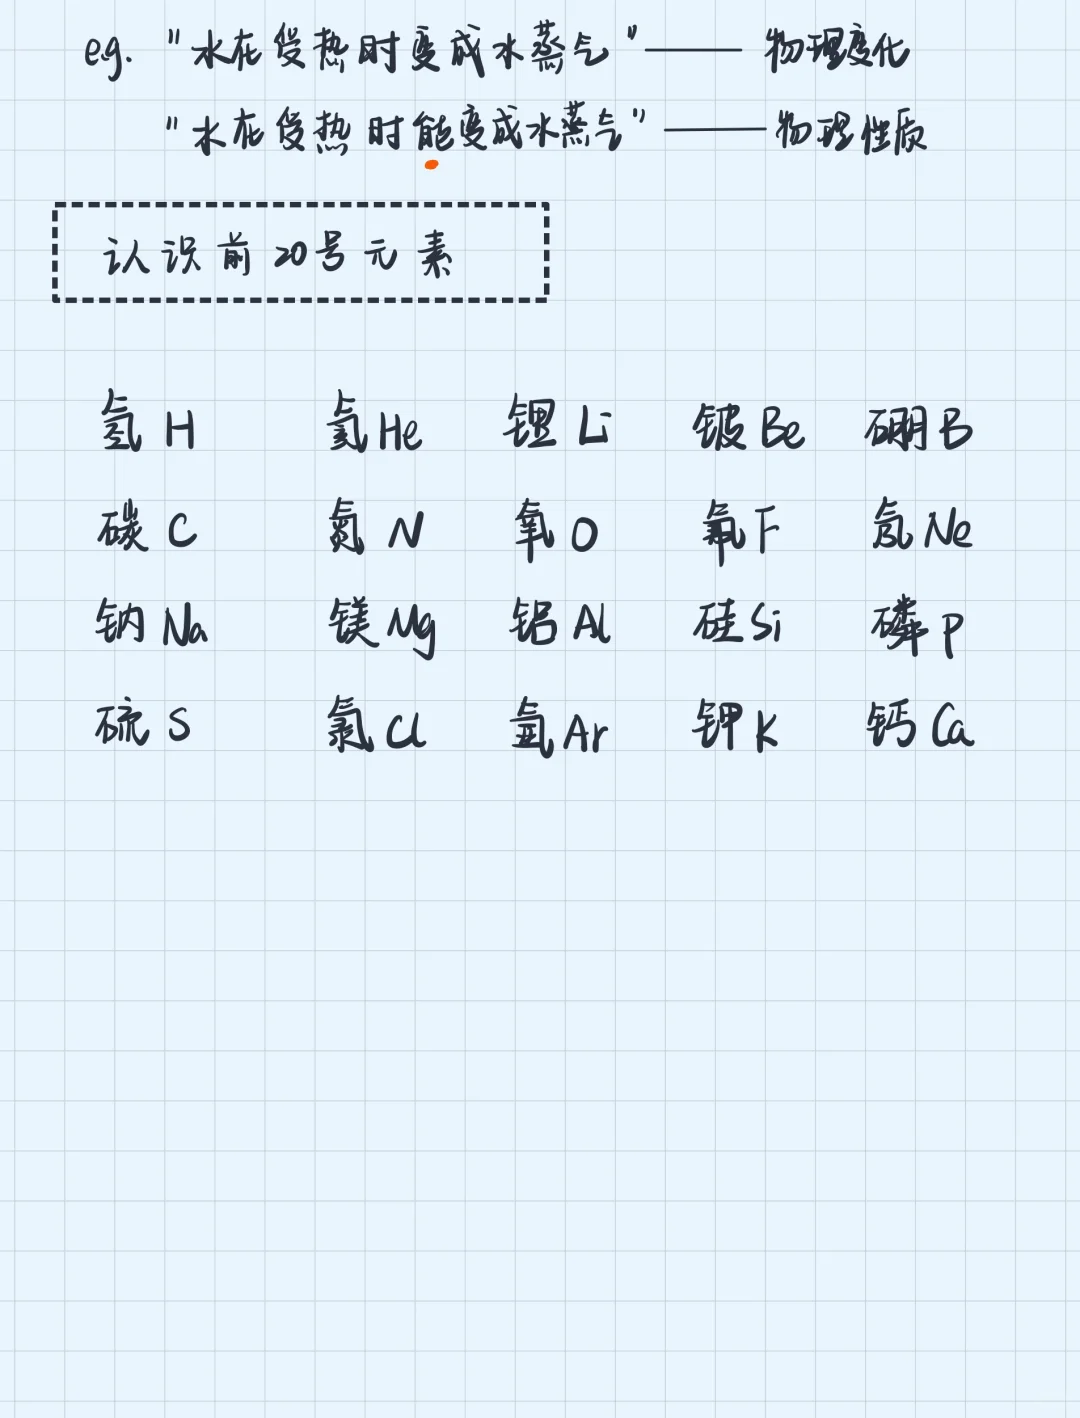 e.g. "水在受热时变成水蒸气"——物理变化
"水在受热时能变成水蒸气"——物理性质
认识前20号元素
氢 H 氦 He 锂 Li 铍 Be 硼 B
碳 C 氮 N 氧 O 氟 F 氖 Ne
钠 Na 镁 Mg 铝 Al 硅 Si 磷 P
硫 S 氯 Cl 氩 Ar 钾 K 钙 Ca